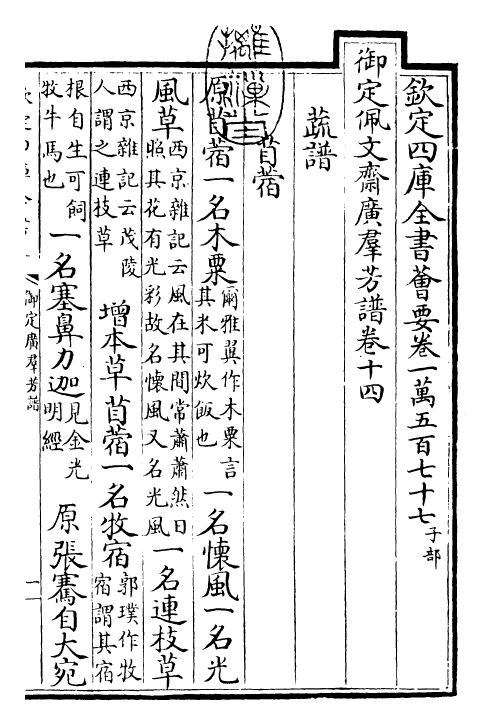 欽定四庫全書薈要卷一萬五百七十七子部
御定佩文齋廣羣芳譜卷十四
蔬譜
苜蓿
原苜蓿一名木粟爾雅翼作木粟言其米可炊飯也一名懷風一名光
風草西京雜記云風在其間常蕭蕭然日照其花有光彩故名懷風又名光風一名連枝草
西京雜記云茂陵人謂之連枝草增本草苜蓿一名牧宿郭璞作牧宿謂其宿
根自生可飼牧牛馬也一名塞鼻力迦見金光明經原張騫自大宛
御定廣羣芳譜
一